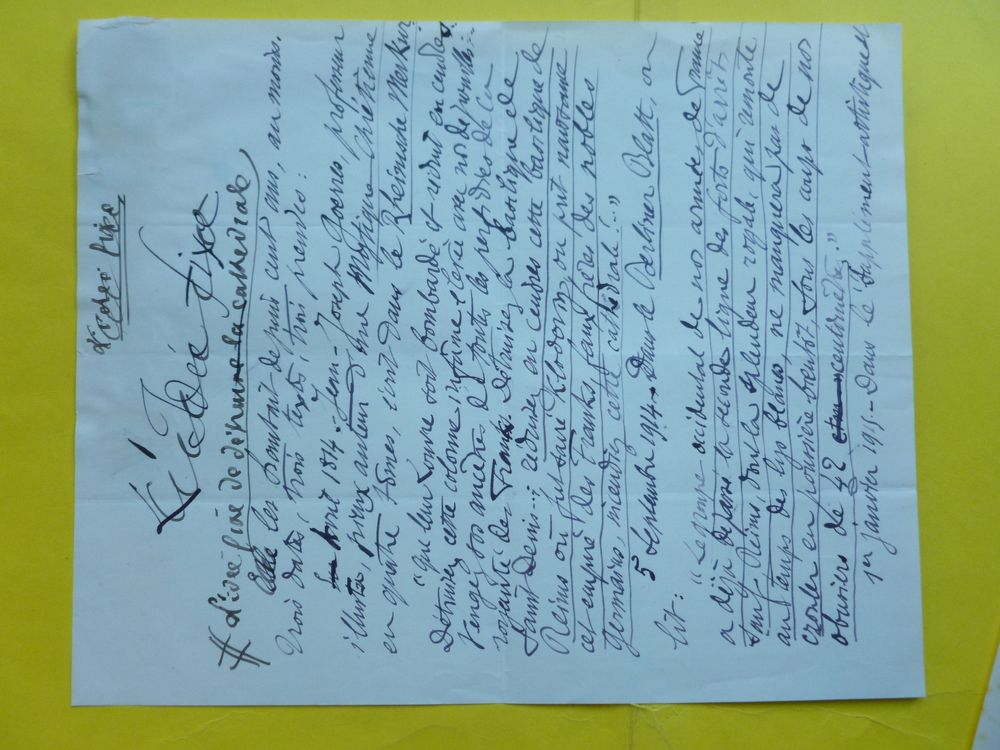 L'Idée fixe
L'Idée fixe
# L'idée fixe de détruire la cathédrale
Elle les poursuit depuis cent ans, au moins.
Trois dates, trois textes, trois preuves :
Août 1814. Jean-Joseph Goerres, professeur
illustre, pieux auteur d'une Mystique Chrétienne
en quatre tômes, écrit dans le Rheinische Merkur
"Que leur Louvre soit bombardé et réduit en cendres
Détruisez cette colonne infâme élevée avec nos dépouilles...
Vengez vos mères de toutes les perfidies de la
royauté des Francs. Détruisez la basilique de
Saint Denis... réduisez en cendres cette basilique de
Reims où fut sacré Klodovig, où prit naissance
cet empire des Franks, faux frères des nobles
Germains, incendiez cette cathédrale !.."
5 septembre 1914. Dans le Berliner Blatt, on
lit :
"Le groupe occidental de nos armées de France
a déjà dépassé la seconde ligne des forts d'arrêt
sauf Reims, dont la splendeur royale, qui remonte
au temps des lys blancs, ne manquera pas de
crouler en poussière bientôt, sous les coups de nos
obusiers de 42
1er janvier 1915 - Dans le Supplément artistique